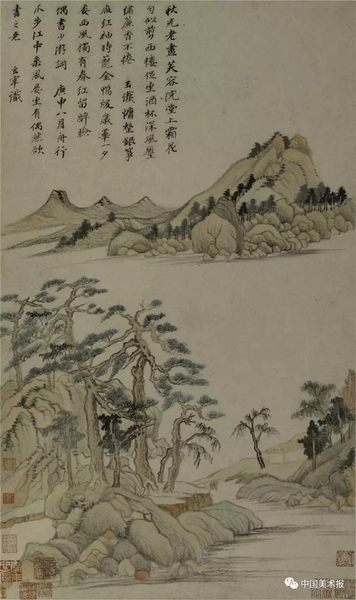 秋光老盡芙容院堂上霜花
勻似剪西樓促坐酒杯深風壓
繡簾香不捲 玉纖慵整銀箏
雁紅袖時籠金鴨煖歲華一夕
委西風獨有春紅留醉臉
偶書少游詞 庚申八月舟行
瓜步江中乘風晏坐有偶然欲
書之意 玄宰識
中国美术报